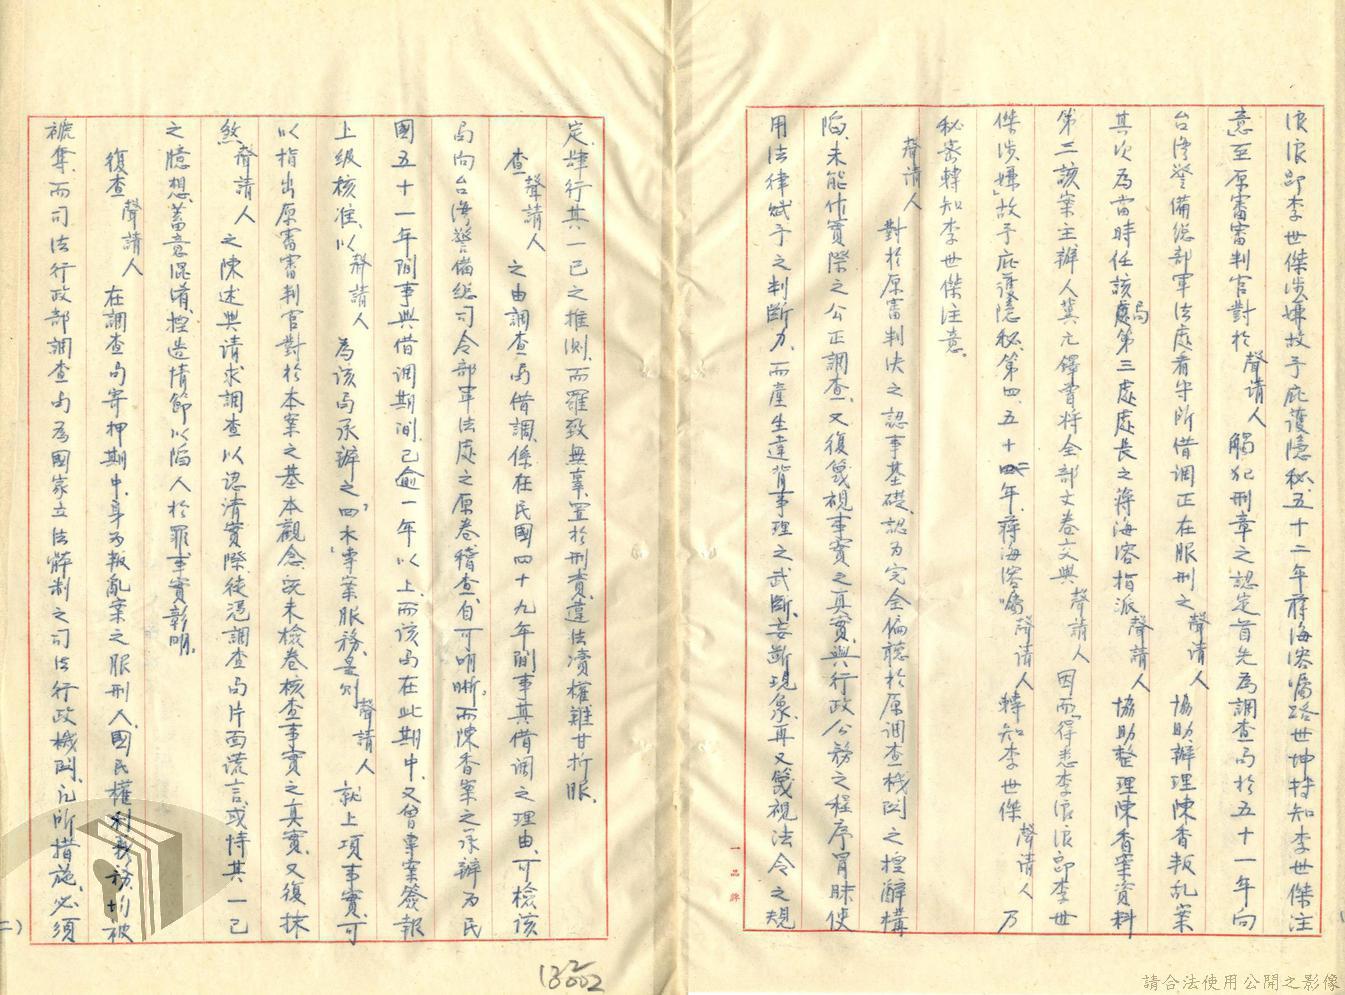 浪浪即李世傑涉嫌故予庇護隱秘，五十二年蔣海容囑路世坤特知李世傑注
意至原審審判官對於聲請人觸犯刑章之認定首先為調查局於五十一年向
台灣警備總部軍法處看守所借調正在服刑之聲請人協助辦理陳香叛乱案
其次為當時任該局第三處處長之蔣海容指派聲請人協助整理陳香案資料
第三該案主辦人冀元鐸曾將全部文卷交與聲請人因而「得悉李浪浪即李世
傑涉嫌」故予庇護隱秘，第四、五十二年，蔣海容囑聲請人轉知李世傑聲請人乃
秘密轉知李世傑注意。
聲請人對於原審判決之認事基礎，認为完全偏聽於原調查机関之控辭構
陷，未能作實際之公正調查，又復篾視事實之真實，與行政公務之程序冒昧使
用法律賦予之判斷力，而產生違背事理之武斷、妄斷現象，再又篾視法令之規
一品牌
定，肆行其一己之推測，而羅致無辜，置於刑責，違法瀆權難甘折服。
查聲請人之由調查局借調，係在民國四十九年間事其借调之理由，可檢該
局向台灣警备總司令部軍法處之原卷稽查，自可明晰。而陳香案之承辦为民
國五十一年間事與借调期间，已逾一年以上，而該局在此期中，又曾專案簽報
上级核准，以聲請人為該局承辦之「四木」專案服務，是則聲請人就上項事實，可
以指出原審審判官對於本案之基本觀念，既未檢卷核查事實之真實，又復抹
煞聲請人之陳述與请求調查以認清實際，徒憑調查局片面謊言，或恃其一己
之臆想，蓄意混淆，揑造情節以陷人於罪，事實彰明。
復查聲請人在調查局寄押期中，身为叛亂案之服刑人，國民權利義務均被
褫奪，而司法行政部調查局為國家立法解制之司法行政機関，凡所措施，必须
二）
13 2/002
請合法使用公開之影像